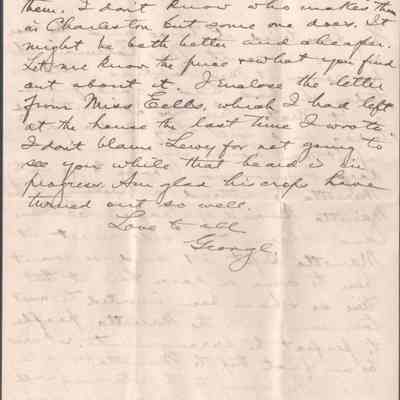 them. I don't know who makes them
in Charleston but some one does. It
might be both better and cheaper.
Let me know the price & what you find
out about it. I enclose the letter
from Miss Eells, which I had left
at the house the last time I wrote.
I don't blame Lewy for not going to
see you while that beard is in
progress. Am glad his crops have
turned out so well.
Love to all
George.